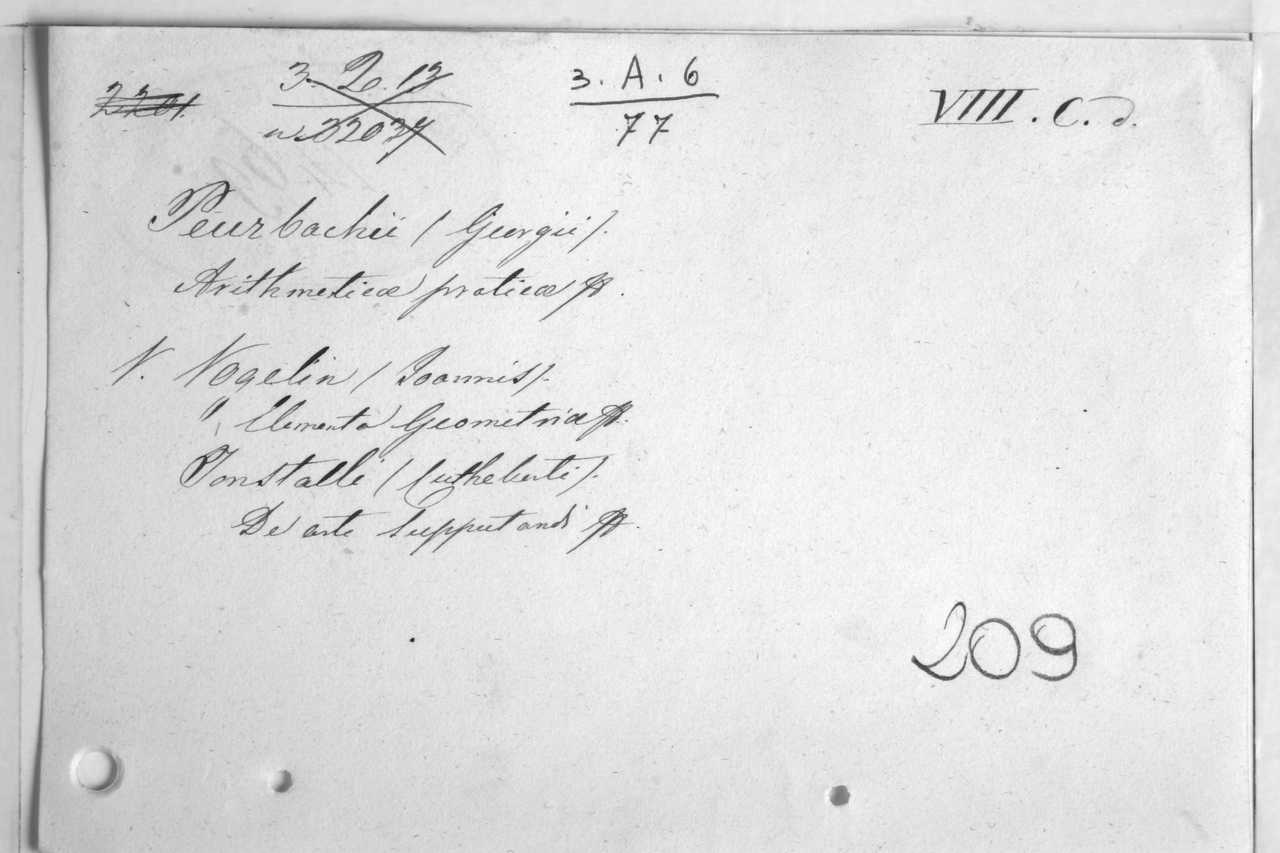 3. A. 6
77
VIII. C. d.
Peurbachii (Georgii).
Arithmeticæ praticæ
V. Vogelin (Joannis).
" Elementa Geometriæ
Tonstalli (Cutheberti).
De arte supputandi
209